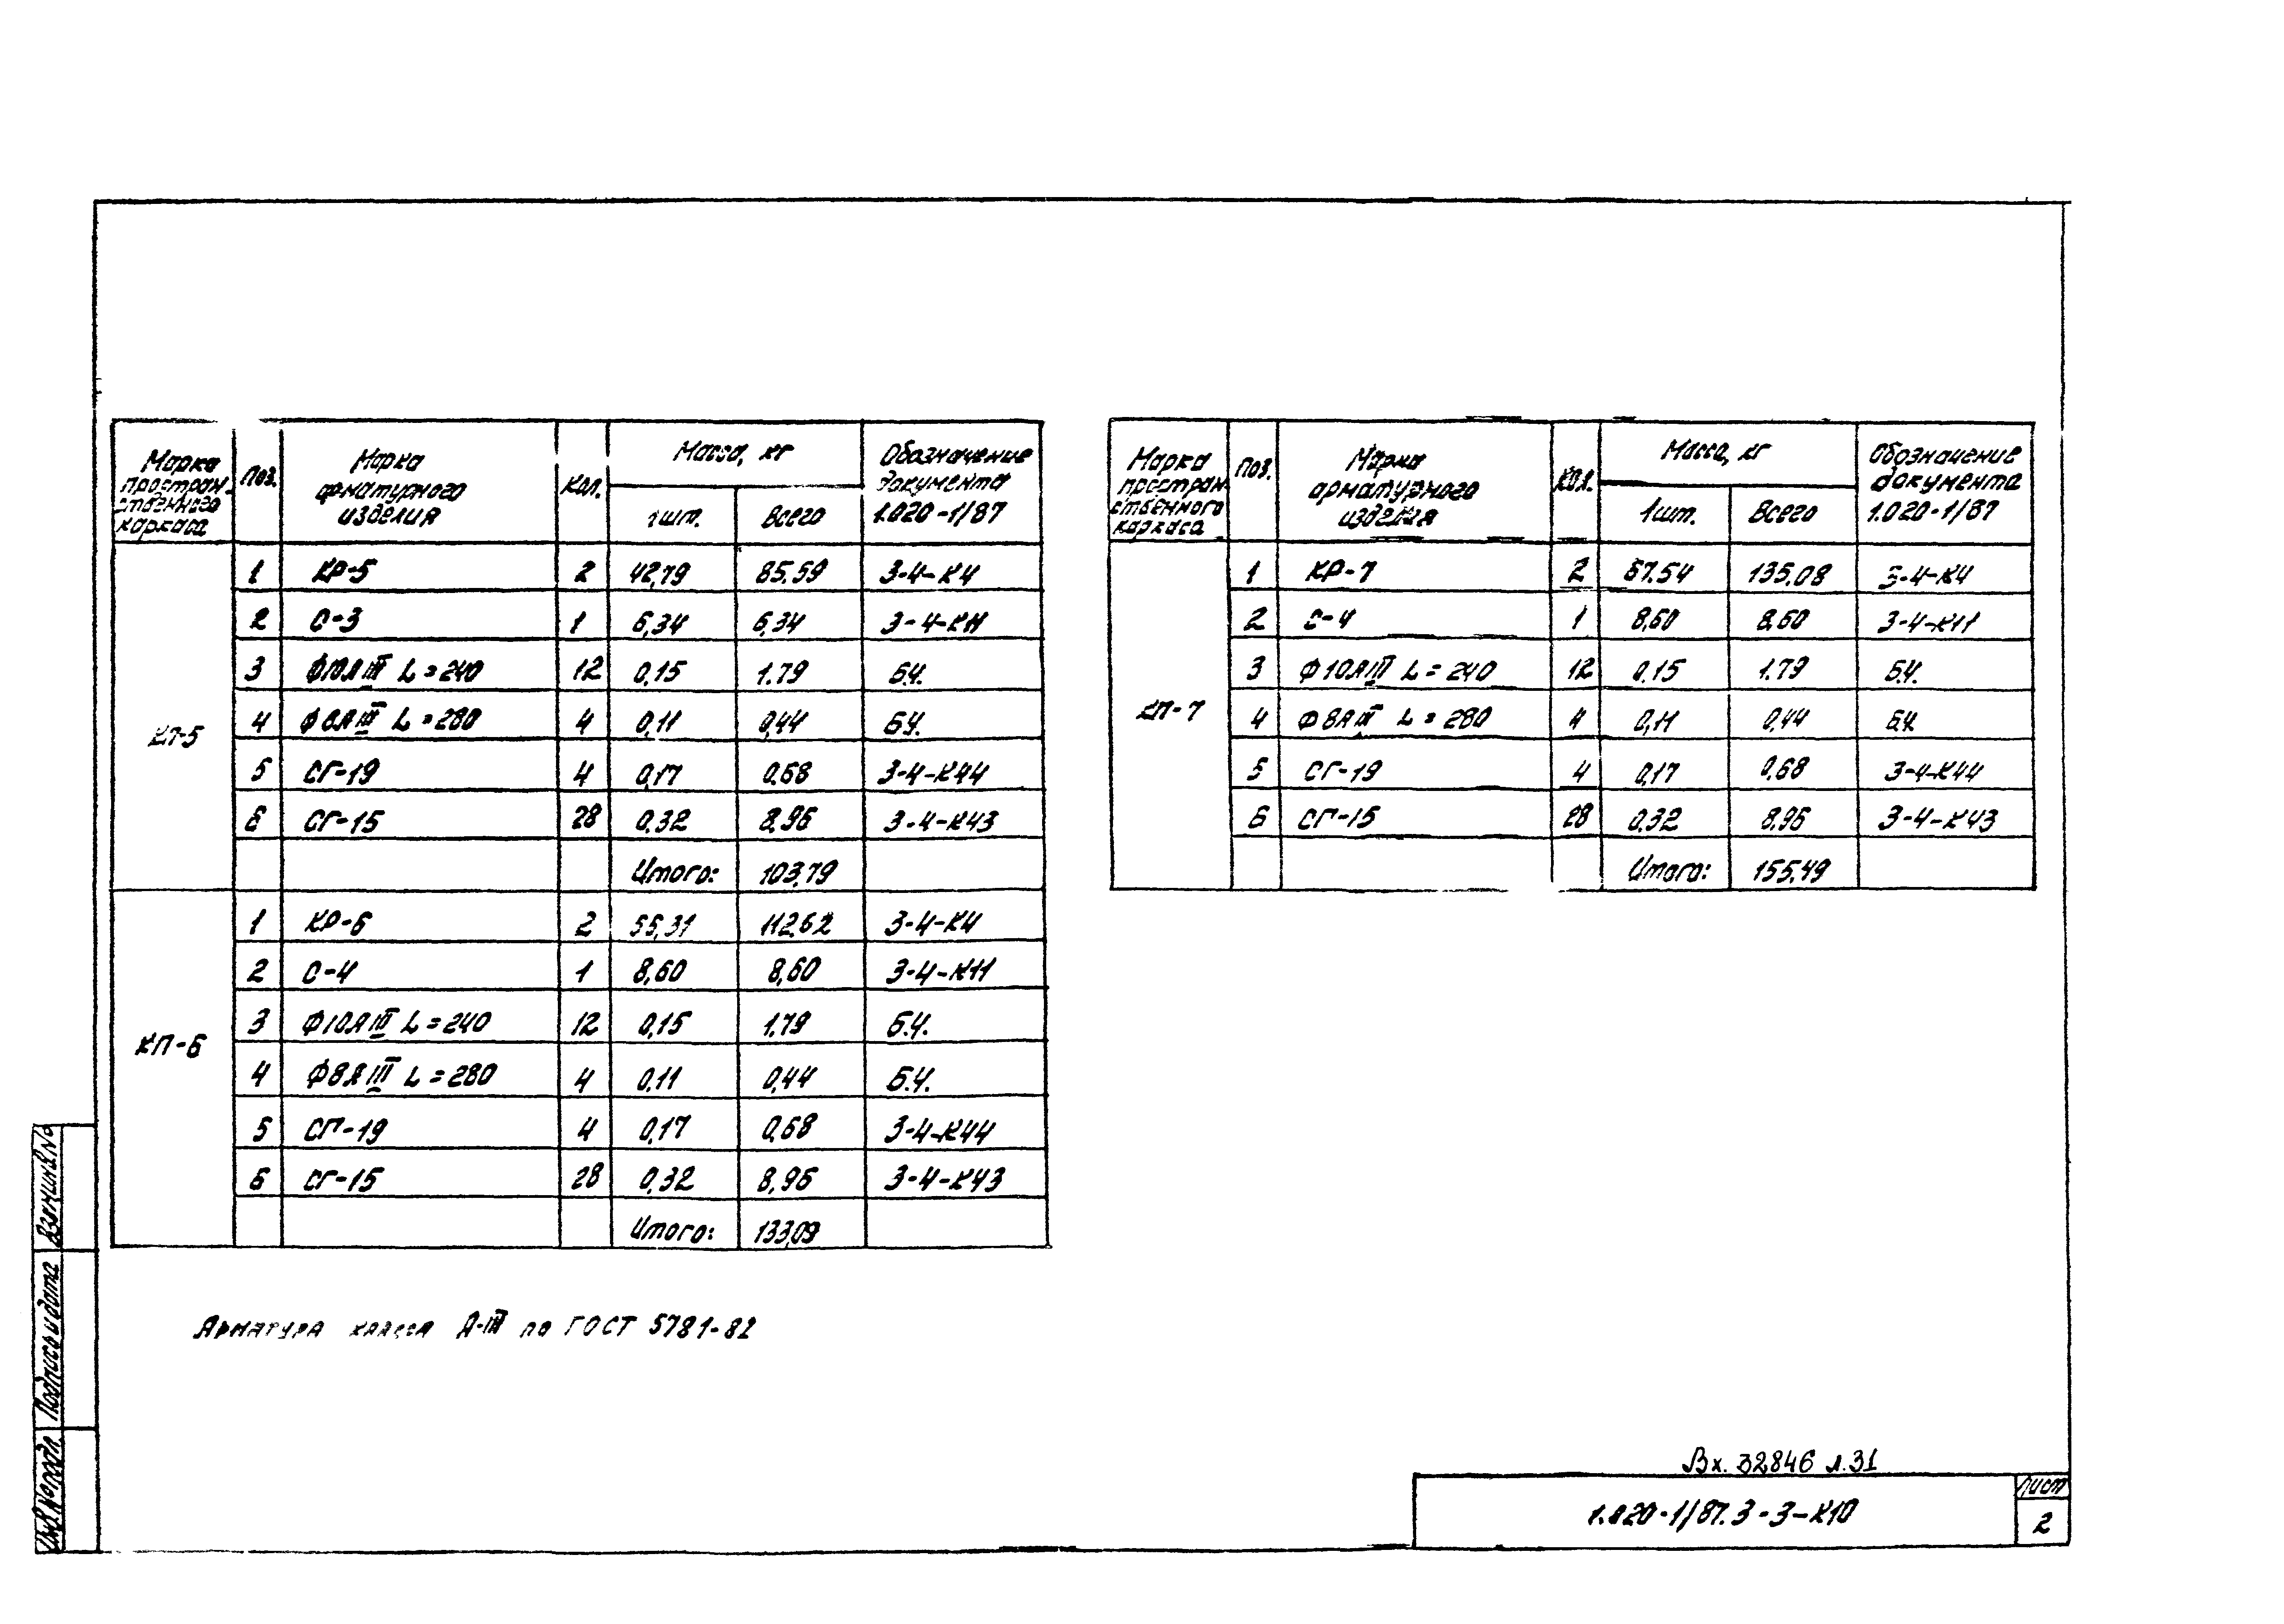 Марка пространственного каркаса | Поз. | Марка арматурного изделия | Кол. | Масса, кг | Обозначение документа 1.020-1/87
1шт. | Всего
КП-5
1 | КР-5 | 2 | 42,79 | 85.59 | 3-4-К4
2 | С-3 | 1 | 6,34 | 6,34 | 3-4-К11
3 | Ф10АIII L=240 | 12 | 0,15 | 1.79 | Б.Ч.
4 | Ф8АIII L=280 | 4 | 0,11 | 0,44 | Б.Ч.
5 | СГ-19 | 4 | 0,17 | 0,68 | 3-4-К44
6 | СГ-15 | 28 | 0,32 | 8,96 | 3-4-К43
Итого: | 103,79
КП-6
1 | КР-6 | 2 | 55,31 | 112,62 | 3-4-К4
2 | С-4 | 1 | 8,60 | 8,60 | 3-4-К11
3 | Ф10АIII L=240 | 12 | 0,15 | 1.79 | Б.Ч.
4 | Ф8АIII L=280 | 4 | 0,11 | 0,44 | Б.Ч.
5 | СГ-19 | 4 | 0,17 | 0,68 | 3-4-К44
6 | СГ-15 | 28 | 0,32 | 8,96 | 3-4-К43
Итого: | 133,09
Марка пространственного каркаса | Поз. | Марка арматурного изделия | Кол. | Масса, кг | Обозначение документа 1.020-1/87
1шт. | Всего
КП-7
1 | КР-7 | 2 | 67.54 | 135.08 | 3-4-К4
2 | С-4 | 1 | 8,60 | 8,60 | 3-4-К11
3 | Ф10АIII L=240 | 12 | 0,15 | 1.79 | Б.Ч.
4 | Ф8АIII L=280 | 4 | 0,11 | 0,44 | Б.Ч.
5 | СГ-19 | 4 | 0,17 | 0,68 | 3-4-К44
6 | СГ-15 | 28 | 0,32 | 8,96 | 3-4-К43
Итого: | 155,49
Арматура класса А-III по ГОСТ 5781-82
Взам.инв.№
Подпись и дата
Инв.№ подл.
Вх. 32846 л.31
1.020-1/87.3-3-К10
Лист
2